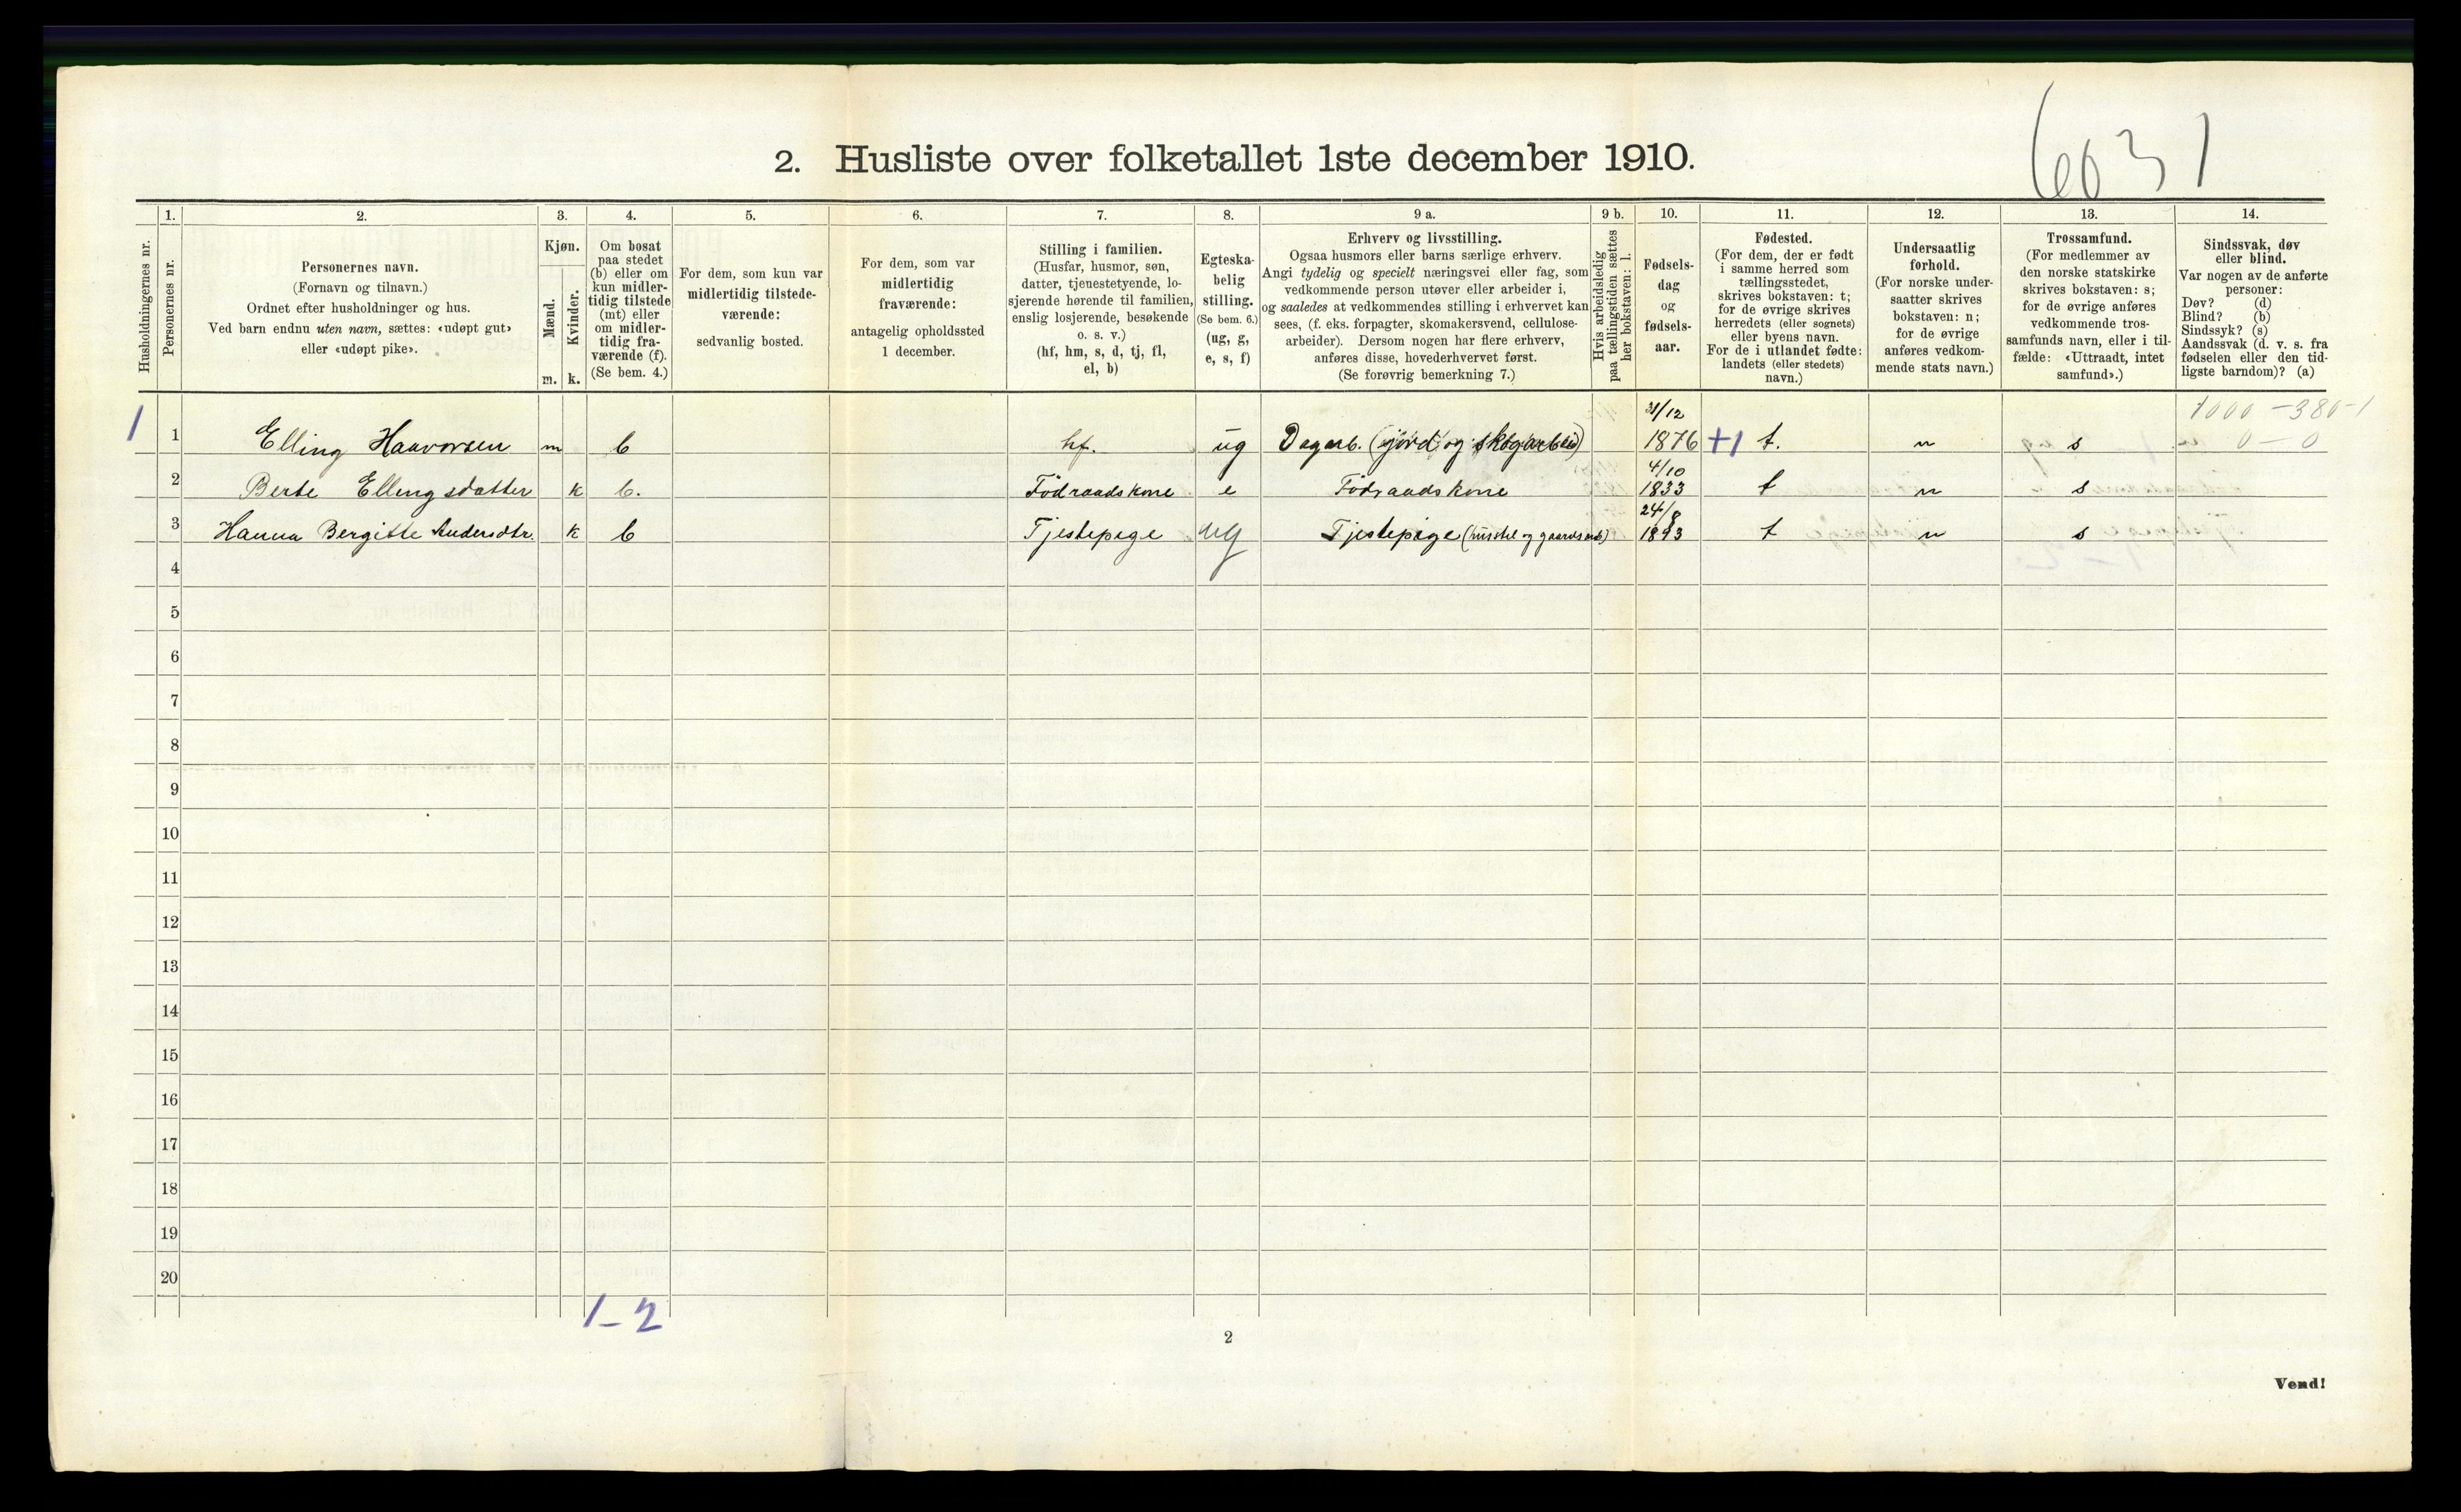 6031
2. Husliste over folketallet 1ste december 1910.
Husholdningernes nr.
1.
Personernes nr.
2.
Personernes navn.
(Fornavn og tilnavn.)
Ordnet efter husholdninger og hus.
Ved barn endnu uten navn, sættes: «udøpt gut»
eller «udøpt pike».
3.
Kjøn.
Mænd.
Kvinder.
m. k.
4.
Om bosat
paa stedet
(b) eller om
kun midler-
tidig tilstede
(mt) eller
om midler-
tidig fra-
værende (f).
(Se bem. 4.)
5.
For dem, som kun var
midlertidig tilstede-
værende:
sedvanlig bosted.
6.
For dem, som var
midlertidig
fraværende:
antagelig opholdssted
1 december.
7.
Stilling i familien.
(Husfar, husmor, søn,
datter, tjenestetyende, lo-
sjerende hørende til familien,
enslig losjerende, besøkende
o. s. v.)
(hf, hm, s, d, tj, fl,
el, b)
8.
Egteska-
belig
stilling.
(Se bem. 6.)
(ug, g,
e, s, f)
9 a.
Erhverv og livsstilling.
Ogsaa husmors eller barns særlige erhverv.
Angi tydelig og specielt næringsvei eller fag, som
vedkommende person utøver eller arbeider i,
og saaledes at vedkommendes stilling i erhvervet kan
sees, (f. eks. forpagter, skomakersvend, cellulose-
arbeider). Dersom nogen har flere erhverv,
anføres disse, hovederhvervet først.
(Se forøvrig bemerkning 7.)
9 b.
Hvis arbeidsledig
paa tællingstiden sættes
her bokstaven: l.
10.
Fødsels-
dag
og
fødsels-
aar.
11.
Fødested.
(For dem, der er født
i samme herred som
tællingsstedet,
skrives bokstaven: t;
for de øvrige skrives
herredets (eller sognets)
eller byens navn.
For de i utlandet fødte:
landets (eller stedets)
navn.)
12.
Undersaatlig
forhold.
(For norske under-
saatter skrives
bokstaven: n;
for de øvrige
anføres vedkom-
mende stats navn.)
13.
Trossamfund.
(For medlemmer av
den norske statskirke
skrives bokstaven: s;
for de øvrige anføres
vedkommende tros-
samfunds navn, eller i til-
fælde: «Uttraadt, intet
samfund».)
14.
Sindssvak, døv
eller blind.
Var nogen av de anførte
personer:
Døv? (d)
Blind? (b)
Sindssyk? (s)
Aandssvak (d. v. s. fra
fødselen eller den tid-
ligste barndom)? (a)
1000-380-1
0-0
1 1 Elling Haavorsen m b hf. ug Dagarb. (jord og skogarbeid) 31/12 1876 +1 t. n s
2 Berte Ellingsdatter k b. Födraadskone e Födraadskone 4/10 1833 t n s
3 Hanna Bergitte Andersdtr. k b Tjestepige ug Tjestepige (husstel og gaardsarb) 24/8 1893 t n s
4
5
6
7
8
9
10
11
12
13
14
15
16
17
18
19
20
1-2
2
Vend!